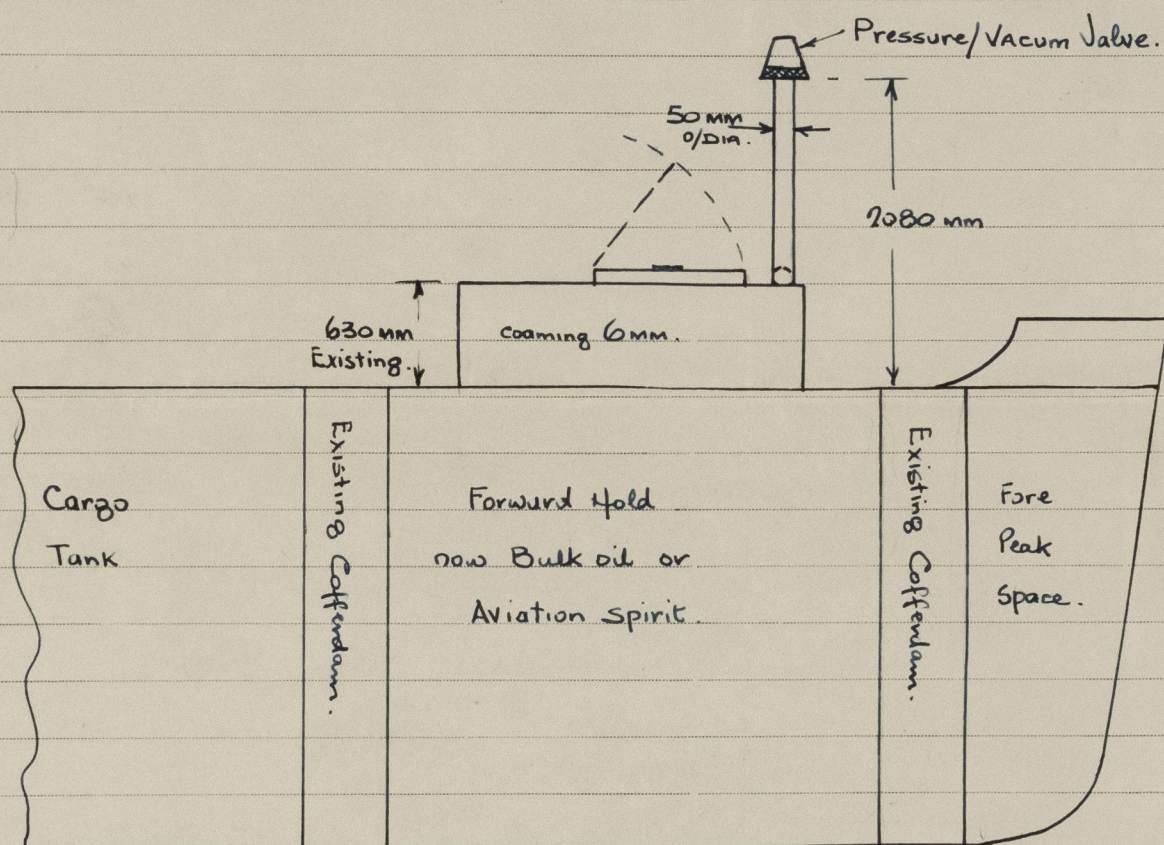 Pressure/Vacum Valve.
50 mm
O/DIA.
2080 mm
630 mm
Existing.
coaming 6mm.
Cargo
Tank
Existing Coffendam.
Forwurd Hold
now Bulk oil or
Aviation Spirit.
Existing Coffendam.
Fore
Peak
Space.